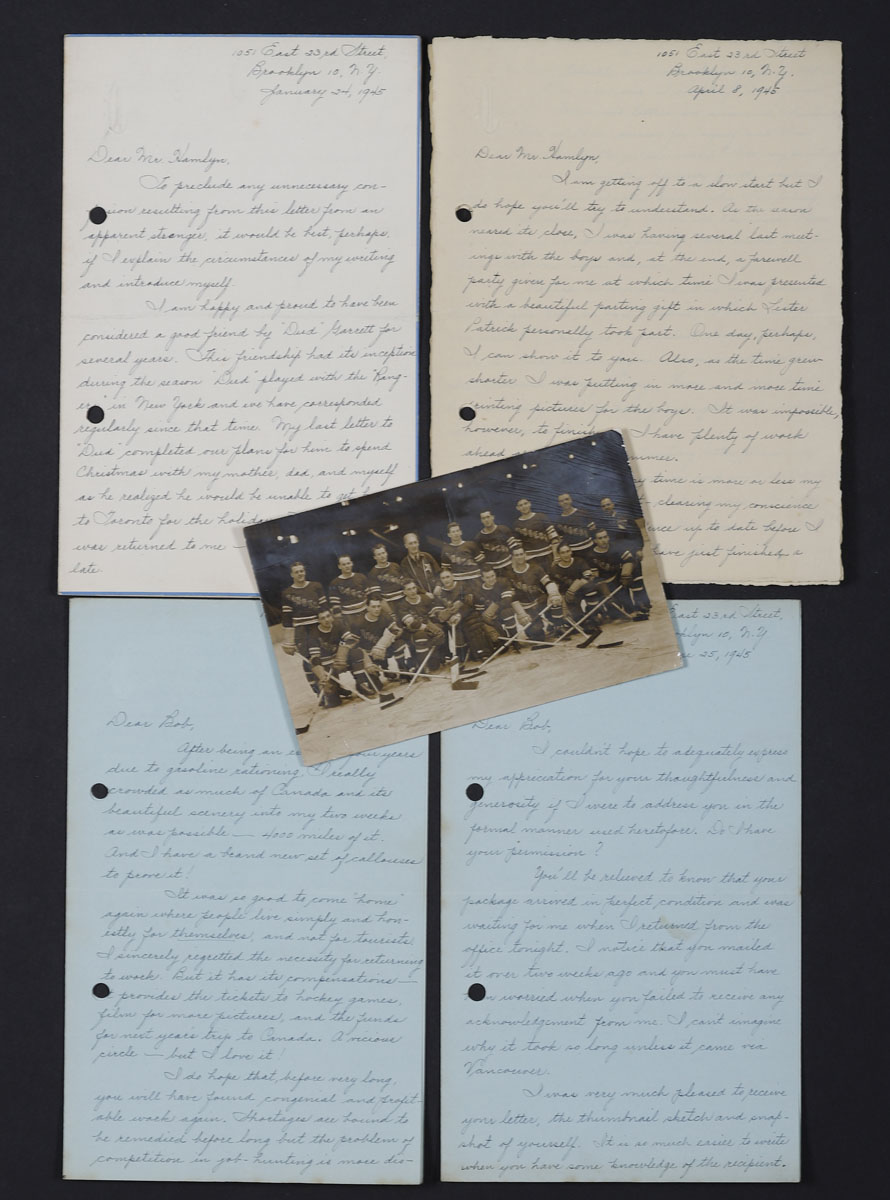 1051 East 23rd Street,
Brooklyn 10, N.Y.
January 24, 1945
Dear Mr. Hamlyn,
To preclude any unnecessary con-
resulting from this letter from an
apparent stranger, it would be best, perhaps,
if I explain the circumstances of my writing
and introduce myself.
I am happy and proud to have been
considered a good friend by "Dud" Garrett for
several years. This friendship had its inception
during the season "Dud" played with the "Rang-
ers" in New York and we have corresponded
regularly since that time. My last letter to
"Dud" completed our plans for him to spend
Christmas with my mother, dad, and myself
as he realized he would be unable to get
to Toronto for the
was returned to me —
late.
1051 East 23rd Street
Brooklyn 10, N.Y.
April 8, 1945
Dear Mr. Hamlyn,
I am getting off to a slow start but I
do hope you'll try to understand. As the season
neared its close, I was having several last meet-
ings with the boys and, at the end, a farewell
party given for me at which time I was presented
with a beautiful parting gift in which Lester
Patrick personally took part. One day, perhaps,
I can show it to you. Also, as the time grew
shorter I was putting in more and more time
printing pictures for the boys. It was impossible,
however, to finish I have plenty of work
ahead
time is more or less my
clearing my conscience
up to date before I
have just finished a
Dear Bob,
After being an years
due to gasoline rationing, I really
crowded as much of Canada and its
beautiful scenery into my two weeks
as was possible — 4000 miles of it.
And I have a brand new set of callouses
to prove it!
It was so good to come "home"
again where people live simply and hon-
estly for themselves, and not for tourists.
I sincerely regretted the necessity for returning
to work. But it has its compensations —
it provides the tickets to hockey games,
film for more pictures, and the funds
for next year's trip to Canada. A vicious
circle — but I love it!
I do hope that, before very long,
you will have found congenial and profit-
able work again. Shortages are bound to
be remedied before long but the problem of
competition in job-hunting is more dis-
East 23rd Street,
Brooklyn 10, N.Y.
25, 1945
Dear Bob,
I couldn't hope to adequately express
my appreciation for your thoughtfulness and
generosity if I were to address you in the
formal manner used heretofore. Do I have
your permission?
You'll be relieved to know that your
package arrived in perfect condition and was
waiting for me when I returned from the
office tonight. I notice that you mailed
it over two weeks ago and you must have
been worried when you failed to receive any
acknowledgement from me. I can't imagine
why it took so long unless it came via
Vancouver.
I was very much pleased to receive
your letter, the thumbnail sketch and snap-
shot of yourself. It is so much easier to write
when you have some knowledge of the recipient.